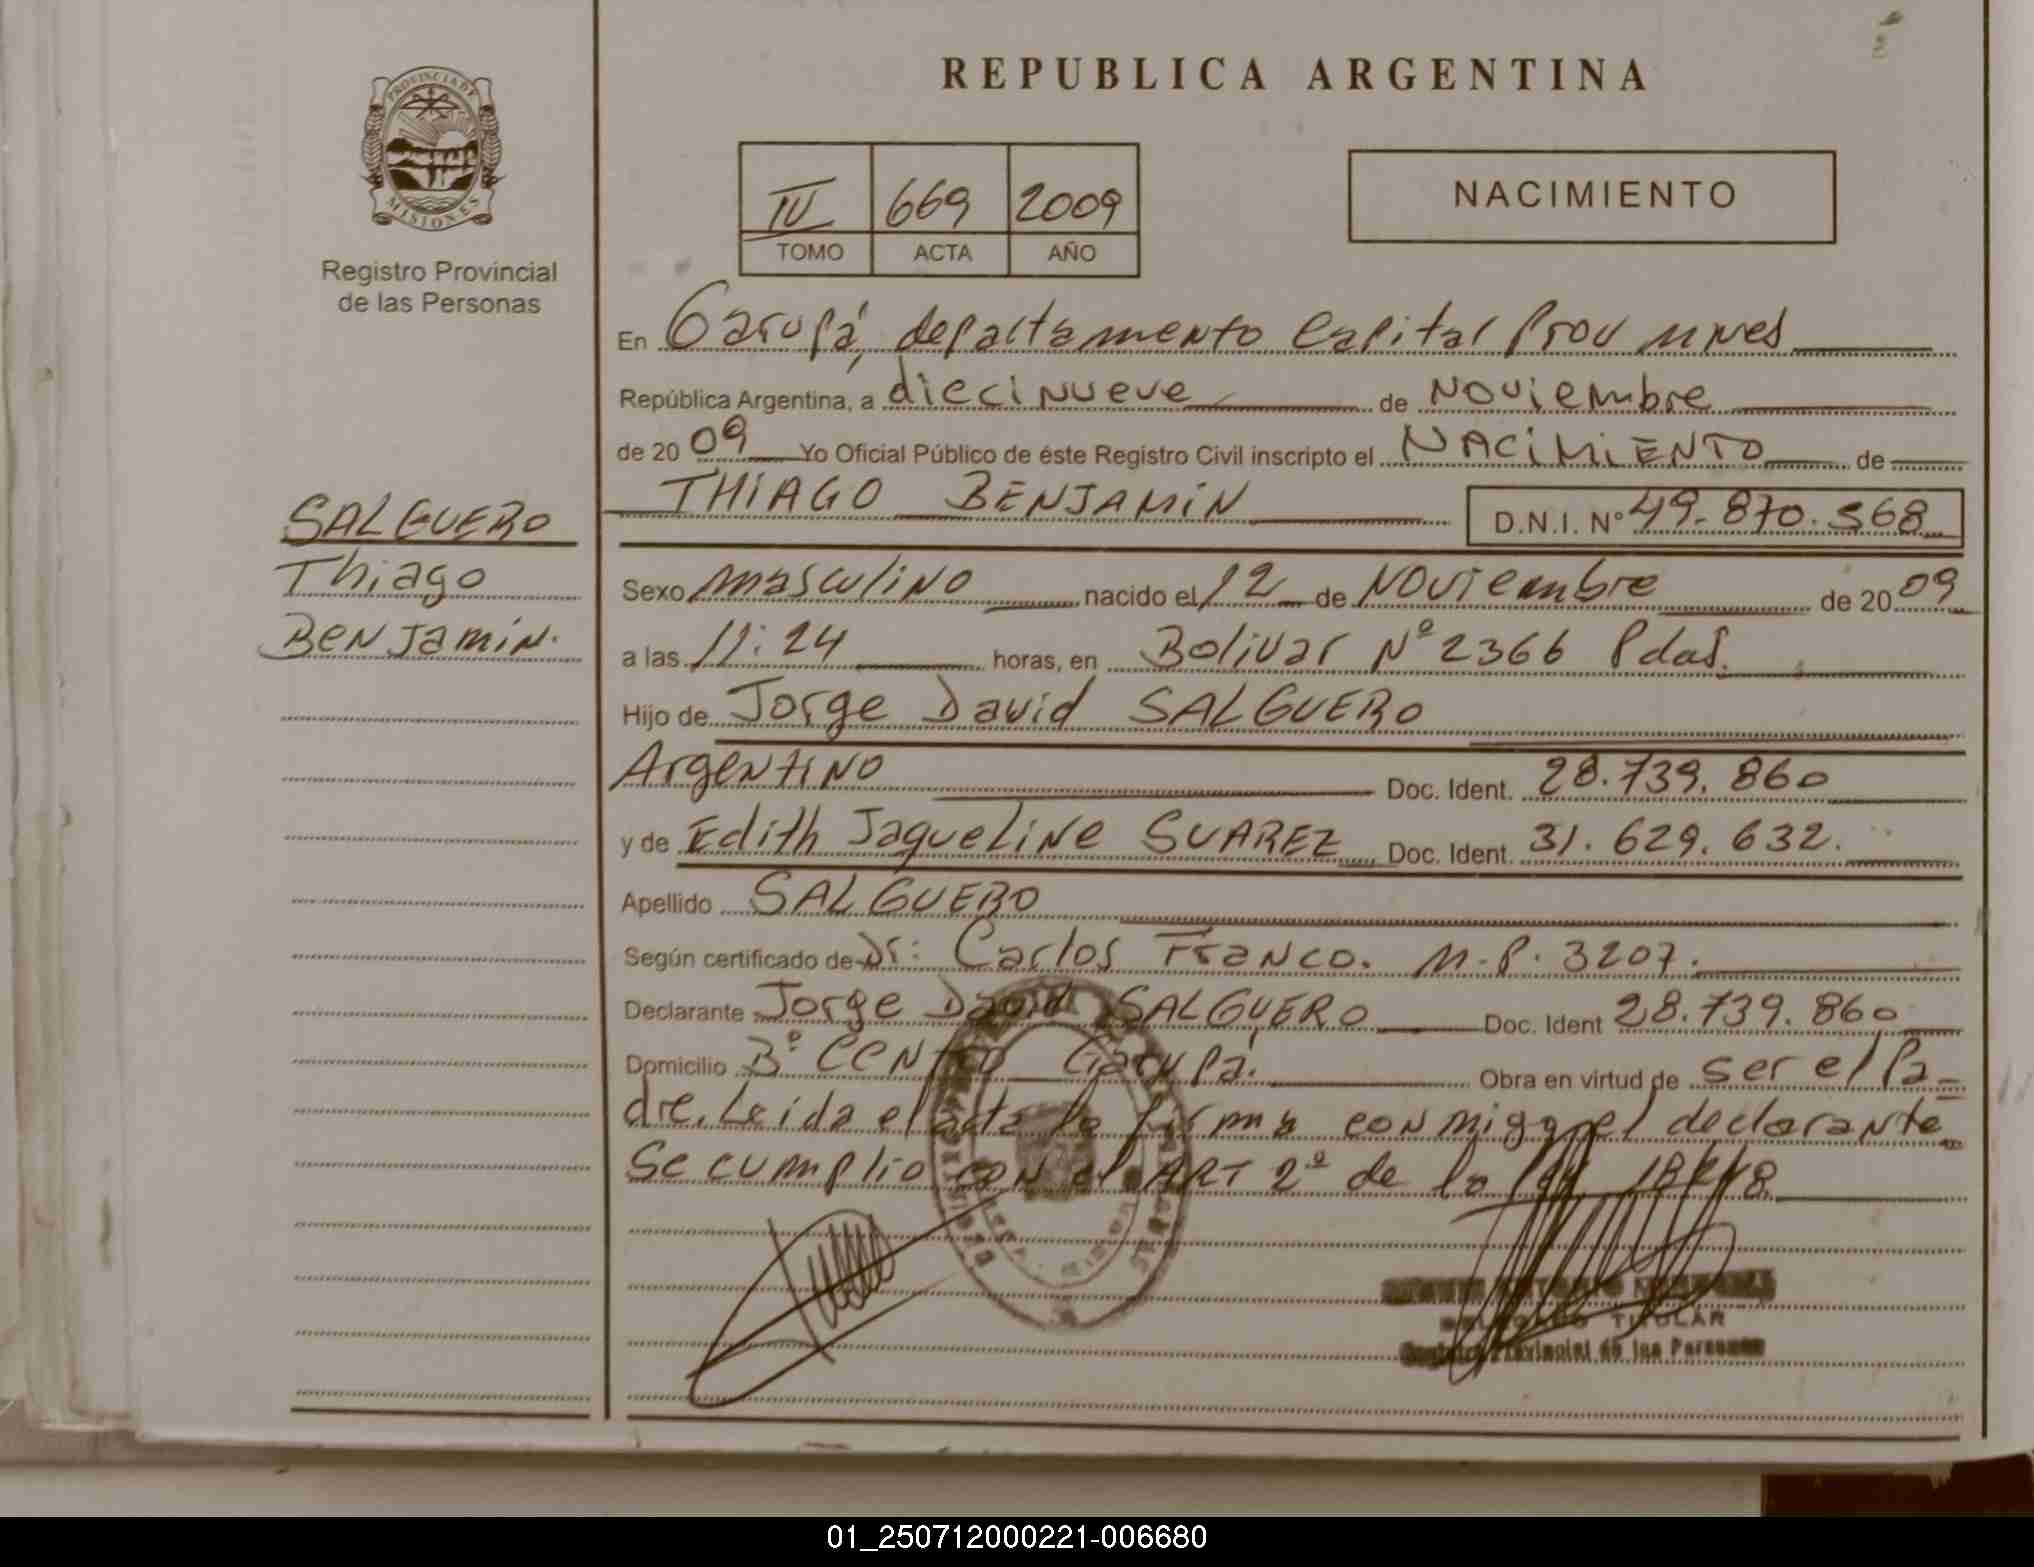 REPUBLICA ARGENTINA
PROVINCIA DE
MISIONES
Registro Provincial
de las Personas
IV 669 2009
TOMO ACTA AÑO
NACIMIENTO
En Garupá, departamento Capital Prov Mnes
República Argentina, a diecinueve de Noviembre
de 2009 Yo Oficial Público de éste Registro Civil inscripto el NACIMIENTO de
THIAGO BENJAMIN D.N.I. Nº 49.870.568
SALGUERO
Thiago
Benjamin.
Sexo masculino nacido el 12 de Noviembre de 2009
a las 11:24 horas, en Bolivar Nº 2366 Pdas.
Hijo de Jorge David SALGUERO
Argentino Doc. Ident. 28.739.860
y de Edith Jaqueline SUAREZ Doc. Ident. 31.629.632.
Apellido SALGUERO
Según certificado de Dr: Carlos Franco. M.P. 3207.
Declarante Jorge David SALGUERO Doc. Ident 28.739.860
Domicilio Bº Centro Garupá. Obra en virtud de ser el Pa-
dre. Leida el acta la firma conmigo el declarante
Se cumplio con el ART 2º de la Ley 18248
TITULAR
Provincial de las Personas
01_250712000221-006680